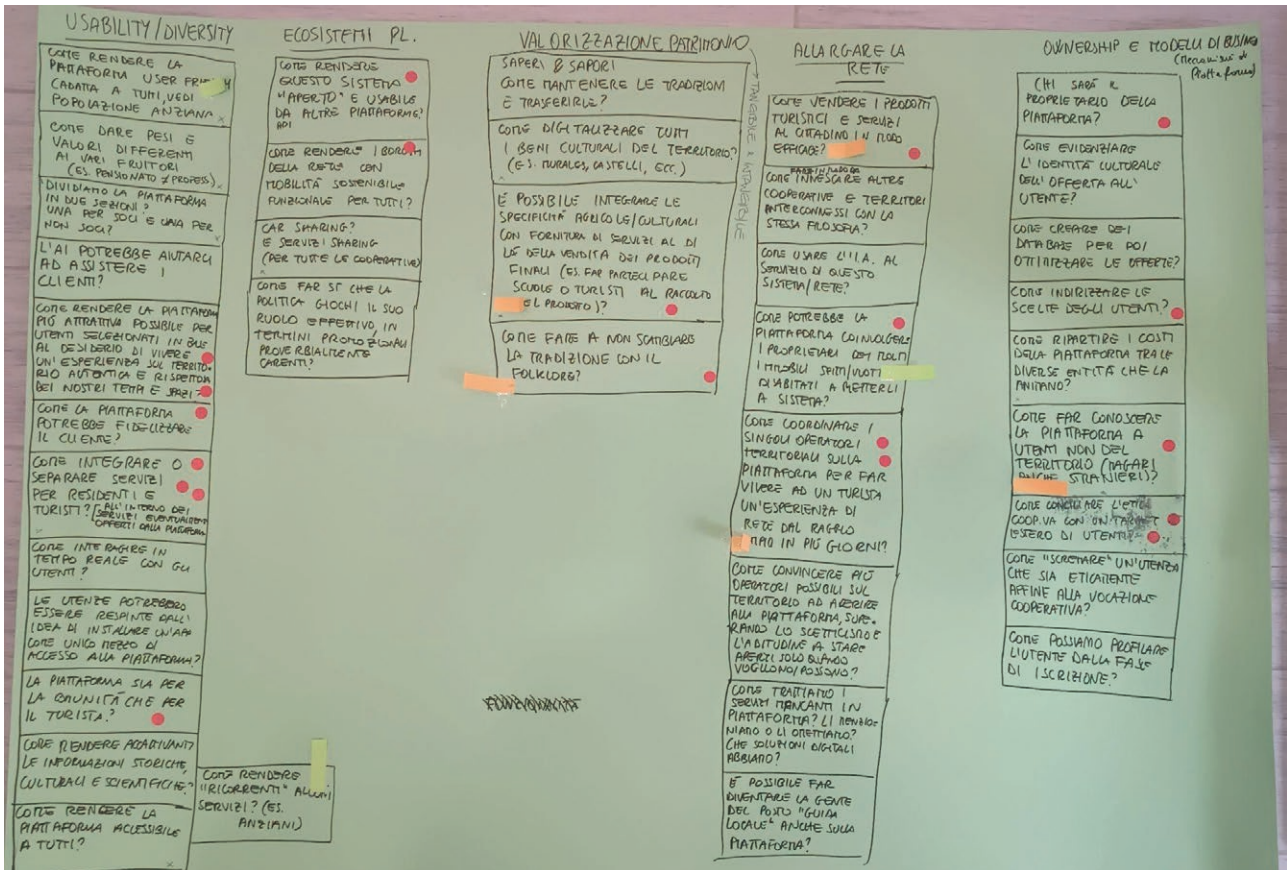 USABILITY/DIVERSITY
COME RENDERE LA
PIATTAFORMA USER
ADATTA A TUTTI, VEDI
POPOLAZIONE ANZIANA
COME DARE PESI E
VALORI DIFFERENTI
AI VARI FRUITORI
(ES. PENSIONATO ≠ PROFESS).
DIVIDIAMO LA PIATTAFORMA
IN DUE SEZIONI?
UNA PER SOCI E UNA PER
NON SOCI?
L'AI POTREBBE AIUTARCI
AD ASSISTERE I
CLIENTI?
COME RENDERE LA PIATTAFORMA
PIÚ ATTRATTIVA POSSIBILE PER
UTENTI SELEZIONATI IN BASE
AL DESIDERIO DI VIVERE
UN'ESPERIENZA SUL TERRITO-
RIO AUTENTICA E RISPETTOSA
DEI NOSTRI TEMPI E SPAZI?
COME LA PIATTAFORMA
POTREBBE FIDELIZZARE
IL CLIENTE?
COME INTEGRARE O
SEPARARE SERVIZI
PER RESIDENTI E
TURISTI? (ALL'INTERNO DEI
SERVIZI EVENTUALMENTE
OFFERTI DALLA PIATTAFORMA
COME INTERAGIRE IN
TEMPO REALE CON GLI
UTENTI?
LE UTENZE POTREBBERO
ESSERE RESPINTE DALL'
IDEA DI INSTALLARE UN'APP
COME UNICO MEZZO DI
ACCESSO ALLA PIATTAFORMA?
LA PIATTAFORMA SIA PER
LA COMUNITÁ CHE PER
IL TURISTA?
COME RENDERE ACCATTIVANTI
LE INFORMAZIONI STORICHE,
CULTURALI E SCIENTIFICHE?
COME RENDERE LA
PIATTAFORMA ACCESSIBILE
A TUTTI?
COME RENDERE
"RICORRENTI" ALCUNI
SERVIZI? (ES.
ANZIANI)
ECOSISTEMI PL.
COME RENDERE
QUESTO SISTEMA
"APERTO" E USABILE
DA ALTRE PIATTAFORME?
COME RENDERE I BORGHI
DELLA RETE CON
MOBILITÁ SOSTENIBILE
FUNZIONALE PER TUTTI?
CAR SHARING?
E SERVIZI SHARING
(PER TUTTE LE COOPERATIVE)
COME FAR SÍ CHE LA
POLITICA GIOCHI IL SUO
RUOLO EFFETTIVO, IN
TERMINI PROMOZIONALI
PROVERBIALMENTE
CARENTI?
VALORIZZAZIONE PATRIMONIO
SAPERI & SAPORI
COME MANTENERE LE TRADIZIONI
E TRASFERIRLE?
COME DIGITALIZZARE TUTTI
I BENI CULTURALI DEL TERRITORIO?
(ES. MURALES, CASTELLI, ECC.)
É POSSIBILE INTEGRARE LE
SPECIFICITÁ AGRICOLE/CULTURALI
CON FORNITURA DI SERVIZI AL DI
LÁ DELLA VENDITA DEI PRODOTTI
FINALI (ES. FAR PARTECIPARE
SCUOLE O TURISTI AL RACCOLTO
DEL PRODOTTO)?
COME FARE A NON SCAMBIARE
LA TRADIZIONE CON IL
FOLKLORE?
TANGIBILE & INTANGIBILE
ALLARGARE LA
RETE
COME VENDERE I PRODOTTI
TURISTICI E SERVIZI
AL CITTADINO IN MODO
EFFICACE?
COME INNESCARE ALTRE
COOPERATIVE E TERRITORI
INTERCONNESSI CON LA
STESSA FILOSOFIA?
COME USARE L'I.A. AL
SERVIZIO DI QUESTO
SISTEMA/RETE?
COME POTREBBE LA
PIATTAFORMA COINVOLGERE
I PROPRIETARI DEI MOLTI
IMMOBILI SFITTI/VUOTI
DISABITATI A METTERLI
A SISTEMA?
COME COORDINARE I
SINGOLI OPERATORI
TERRITORIALI SULLA
PIATTAFORMA PER FAR
VIVERE AD UN TURISTA
UN'ESPERIENZA DI
RETE DAL
IN PIÚ GIORNI?
COME CONVINCERE PIÚ
OPERATORI POSSIBILI SUL
TERRITORIO AD ADERIRE
ALLA PIATTAFORMA, SUPE-
RANDO LO SCETTICISMO E
L'ABITUDINE A STARE
APERTI SOLO QUANDO
VOGLIONO/POSSONO?
COME TRATTIAMO I
SERVIZI MANCANTI IN
PIATTAFORMA? LI MENZIO-
NIAMO O LI OMETTIAMO?
CHE SOLUZIONI DIGITALI
ABBIAMO?
É POSSIBILE FAR
DIVENTARE LA GENTE
DEL POSTO "GUIDA
LOCALE" ANCHE SULLA
PIATTAFORMA?
OWNERSHIP E MODELLI DI BUSINESS
(Meccanismi di
Piattaforma)
CHI SARÁ IL
PROPRIETARIO DELLA
PIATTAFORMA?
COME EVIDENZIARE
L'IDENTITÁ CULTURALE
DELL'OFFERTA ALL'
UTENTE?
COME CREARE DEI
DATABASE PER POI
OTTIMIZZARE LE OFFERTE?
COME INDIRIZZARE LE
SCELTE DEGLI UTENTI?
COME RIPARTIRE I COSTI
DELLA PIATTAFORMA TRA LE
DIVERSE ENTITÁ CHE LA
ANIMANO?
COME FAR CONOSCERE
LA PIATTAFORMA A
UTENTI NON DEL
TERRITORIO (MAGARI
ANCHE STRANIERI)?
COME CONCILIARE L'ETICA
COOP.VA CON UN TARGET
ESTERO DI UTENTI?
COME "SCREMARE" UN'UTENZA
CHE SIA ETICAMENTE
AFFINE ALLA VOCAZIONE
COOPERATIVA?
COME POSSIAMO PROFILARE
L'UTENTE DALLA FASE
DI ISCRIZIONE?